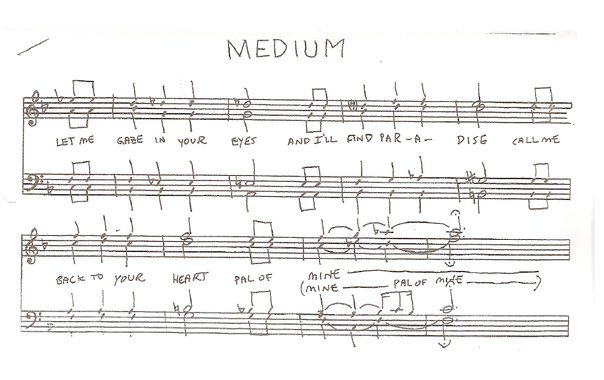 MEDIUM
LET ME GAZE IN YOUR EYES AND I'LL FIND PAR-A-DISE CALL ME
BACK TO YOUR HEART PAL OF MINE
(MINE PAL OF MINE)